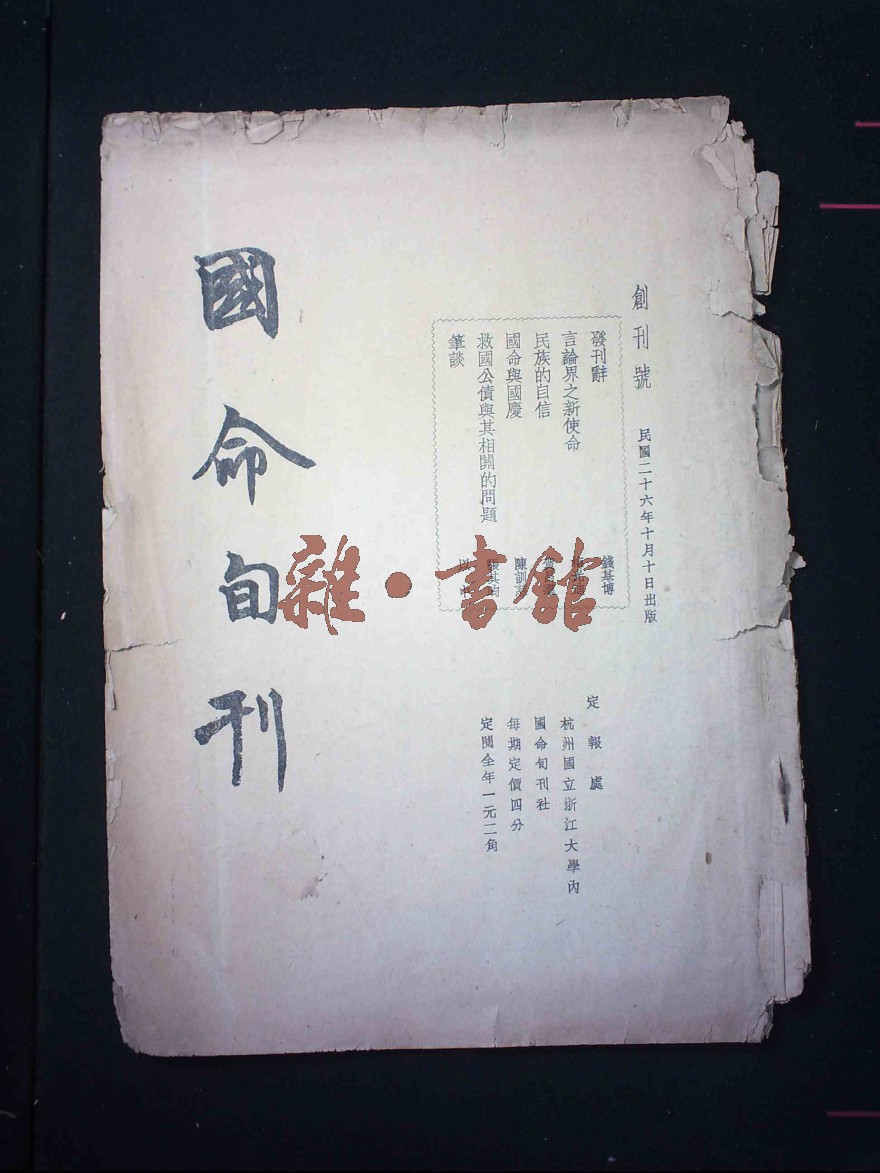 創刊號 民國二十六年十月十日出版
發刊辭 錢基博
言論界之新使命
民族的自信
國命與國慶 陳訓
救國公債與其相關的問題 張其昀
筆談
定報處
杭州國立浙江大學內
國命旬刊社
每期定價四分
定閱全年一元二角
國命旬刊
雜·書館